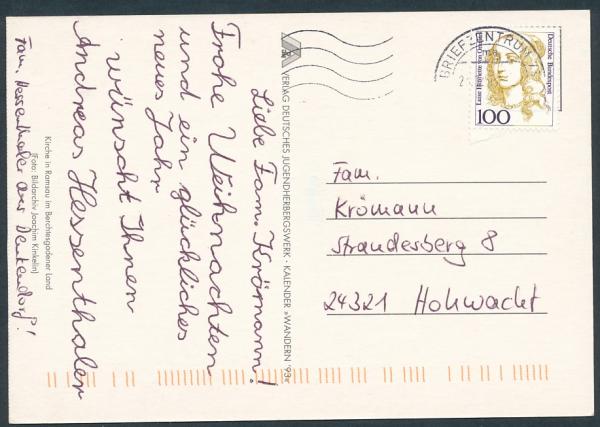 Liebe Fam. Krömann!
Frohe Weihnachten
und ein glückliches
neues Jahr
wünscht Ihnen
Andreas Hessenthaler
Fam. Hessenthaler aus Denkendorf!
Kirche in Ramsau im Berchtesgadener Land
(Foto: Bildarchiv Joachim Kinkelin)
VERLAG DEUTSCHES JUGENDHERBERGSWERK · KALENDER »WANDERN '93«
BRIEFZENTRUM 73
Deutsche Bundespost
100
Luise Henriette von Oranien
Fam.
Krömann
Strandesberg 8
24321 Hohwacht